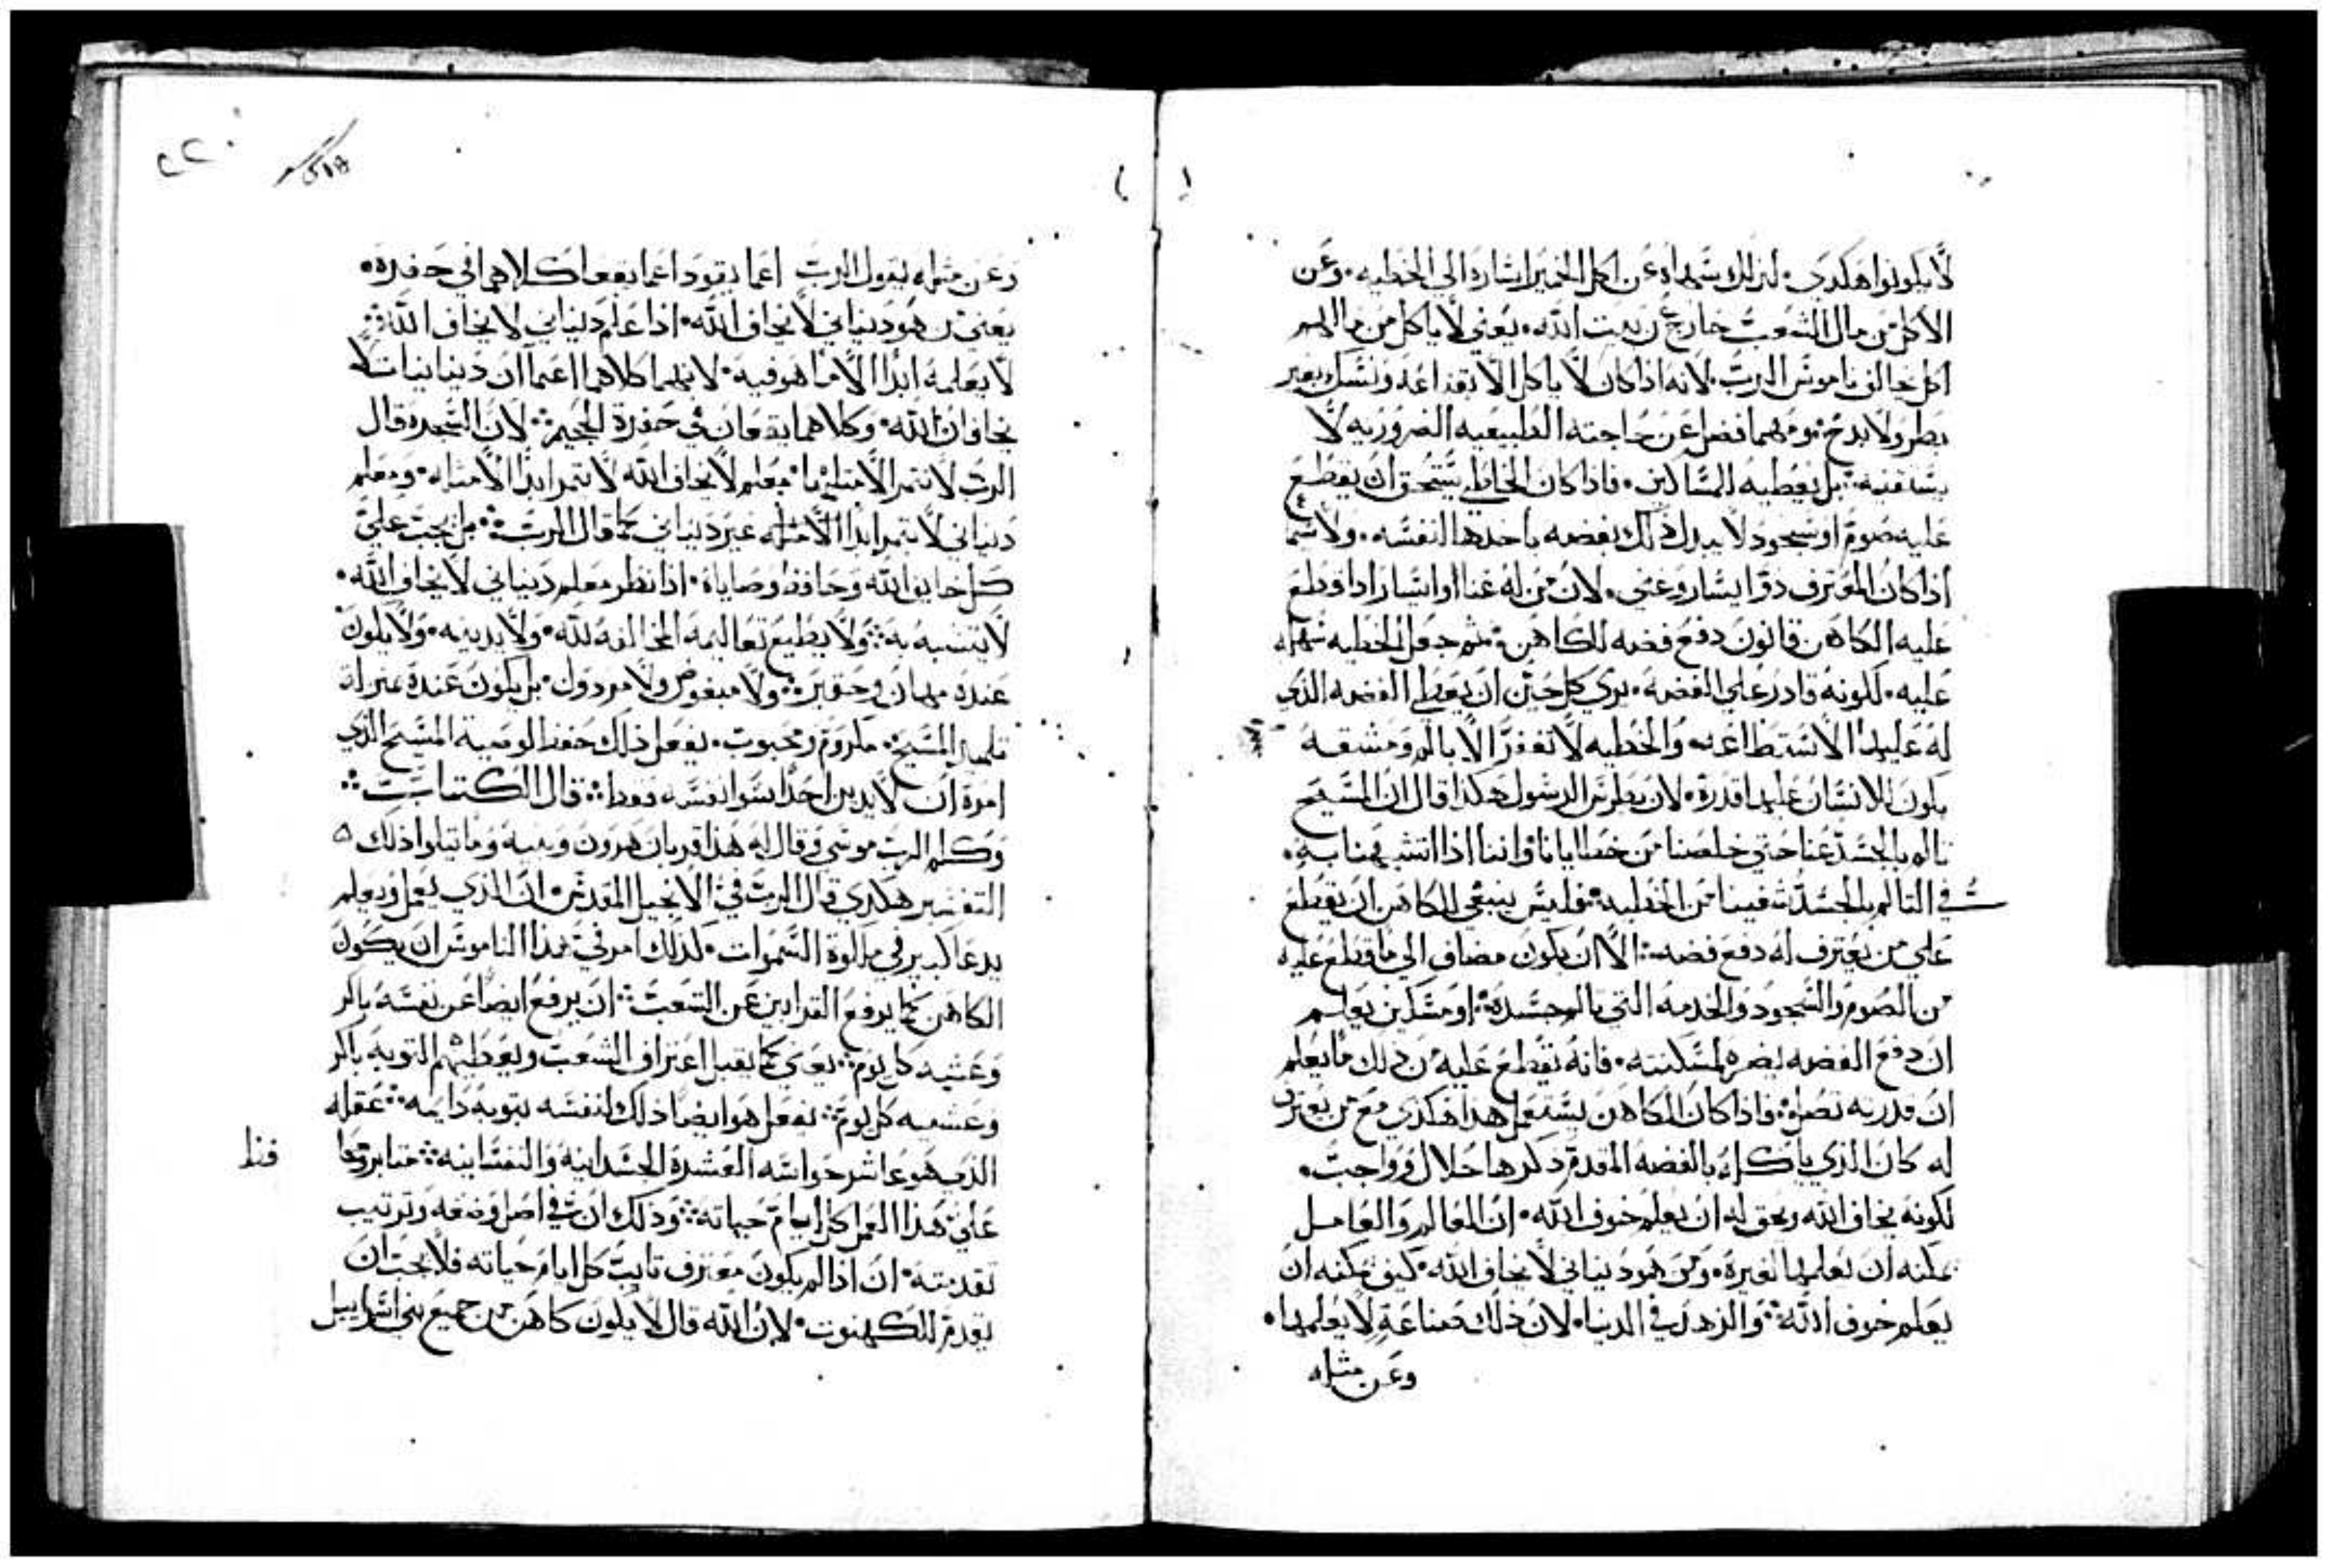 لا يكونوا هكدي. لذلك سماه عن اكل الخمير اشاره الي الخطيه. وعن
الاكل من مال الشعب خارج عن بيت الله. يعني لا ياكل من مالهم
اكل مخالف ناموس الرب. لانه اذا كان لا ياكل الا بقناعه ونسك بغير
بطر ولا بدخ. ومهما فضل عن حاجته الطبيعيه الضروريه لا
يستقنيه. بل يعطيه للمساكين. فاذا كان الخاطي يستحق ان يقطع
عليه صوم او سجود لا يبدل ذلك بفضه ياخدها لنفسه. ولا سيما
اذا كان المعترف ذو ايسار وغني. لان من له غنا او ايسار اذا قطع
عليه الكاهن قانون دفع فضه للكاهن. ثم جعل الخطيه سهله
عليه. لكونه قادر علي الفضه. يري كل حين ان يعطي الفضه الذي
له عليها الاستطاعه. والخطيه لا تغفر الا بالم ومشقه
يكون للانسان عليها قدرة. لان بطرس الرسول هكدا قال ان المسيح
تالم بالجسد عنا حتي خلصنا من خطايانا واننا اذا اتشبهنا به.
في التالم بالجسد شفينا من الخطيه. فليس ينبغي للكاهن ان يقطع
علي من يعترف له دفع فضه. الا ان يكون مضاف الي ما قطع عليه
من الصوم والسجود والخدمه التي تالم جسده. او مسكين يعلم
ان دفع الفضه يضره لمسكنته. فانه يقطع عليه من ذلك ما يعلم
ان قدرته تصله. فاذا كان الكاهن يستعمل هذا هكدي مع من يعترف
له كان الذي ياكله بالفضه المقدم ذكرها حلال وواجب.
لكونه يخاف الله ويحق له ان يعلم خوف الله. ان العالم والعامل
يمكنه ان يعلمها لغيره. ومن هو دنياني لا يخاف الله. كيف يمكنه ان
يعلم خوف الله. والزهد في الدنيا. لان ذلك صناعة لا يعلمها.
وعن مثله
٢٢٠
وعن مثله يقول الرب اعما يقود اعما يقعا كلاهما في حفرة.
يعني من هو دنياني لا يخاف الله. اذا علم دنياني لا يخاف الله
لا يعلمه ابدا الا ما هو فيه. لانهما كلاهما اعما ان دنيانيان لا
يخافان الله. وكلاهما يقعان في حفرة الجحيم. لان الشجره قال
الرب لا تتمر الا مثلها. معلم لا يخاف الله لا يتمر ابدا الا مثله. ومعلم
دنياني لا يتمر ابدا الا مثله غير دنياني كما قال الرب. بل يجب علي
كل خايف الله وحافظ وصاياه. اذا نظر معلم دنياني لا يخاف الله.
لا يتشبه به. ولا يطيع تعاليمه المخالفه لله. ولا يدينه. ولا يكون
عنده مهان وحقير. ولا مبغوض ولا مردول. بل يكون عنده بمنزلة
تلميذ المسيح. مكروم ومحبوب. يفعل ذلك حفظ لوصية المسيح الذي
امره ان لا يدين احدا سوا نفسه فقط. قال الكتاب
وكلم الرب موسي وقال له هذا قربان هرون وبنيه وما تيلوا ذلك
التفسير هكدي قال الرب في الانجيل المقدس. ان الذي يعمل ويعلم
يدعا كبير في ملكوة السموات. لذلك امر في هذا الناموس ان يكون
الكاهن كما يرفع القرابين عن الشعب. ان يرفع ايضا عن نفسه باكر
وعشيه كل يوم. يعني كما يقبل اعتراف الشعب ويعطيهم التوبه باكر
وعشيه كل يوم. يفعل هو ايضا ذلك لنفسه بتوبه دايمه. عقله
الذي هو عاشر حواسه العشرة الجسدانيه والنفسانيه. مثابر وقفا
علي هذا العمل كل ايام حياته. وذلك ان في اصل وضعه وترتيب
تقدمته. ان اذا لم يكون معترف تايب كل ايام حياته فلا يجب ان
يقدم للكهنوت. لان الله قال لا يكون كاهن من جميع بني اسراييل